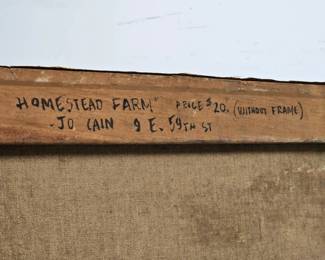 HOMESTEAD FARM" PRICE $20. (WITHOUT FRAME)
-JO CAIN 9 E. 59TH ST